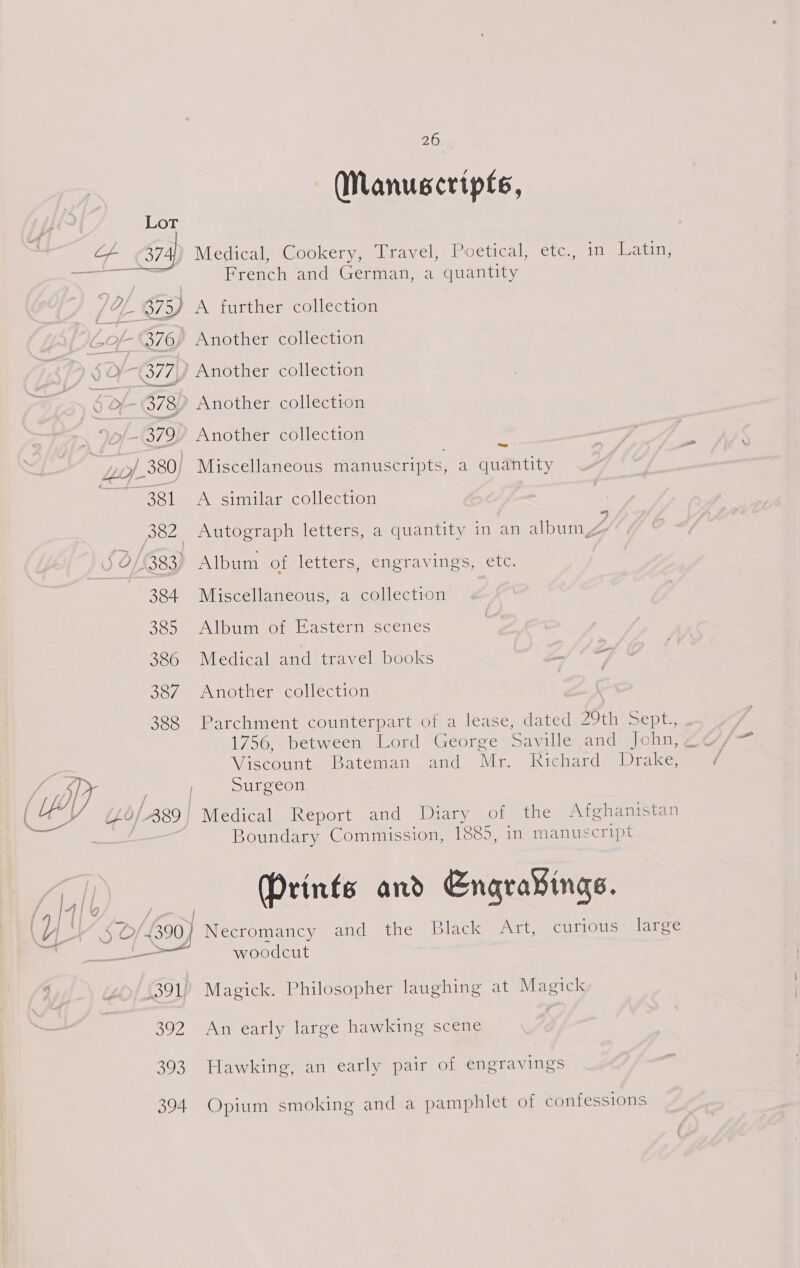 26
Manuscripts,
Lot
374 Medical, Cookery, Travel, Poetical, etc., in Latin,
French and German, a quantity
375 A further collection
376 Another collection
50/- 377 Another collection
378 Another collection
379 Another collection
380 Miscellaneous manuscripts, a quantity
381 A similar collection
382 Autograph letters, a quantity in an album
50/ 383 Album of letters, engravings, etc.
384 Miscellaneous, a collection
385 Album of Eastern scenes
386 Medical and travel books
387 Another collection
388 Parchment counterpart of a lease, dated 29th Sept.,
1756, between Lord George Saville and John,
Viscount Bateman and Mr. Richard Drake,
Surgeon
389 Medical Report and Diary of the Afghanistan
Boundary Commission, 1885, in manuscript
Prints and Engravings.
50/ 390 Necromancy and the Black Art, curious large
woodcut
391 Magick. Philosopher laughing at Magick
392 An early large hawking scene
393 Hawking, an early pair of engravings
394 Opium smoking and a pamphlet of confessions